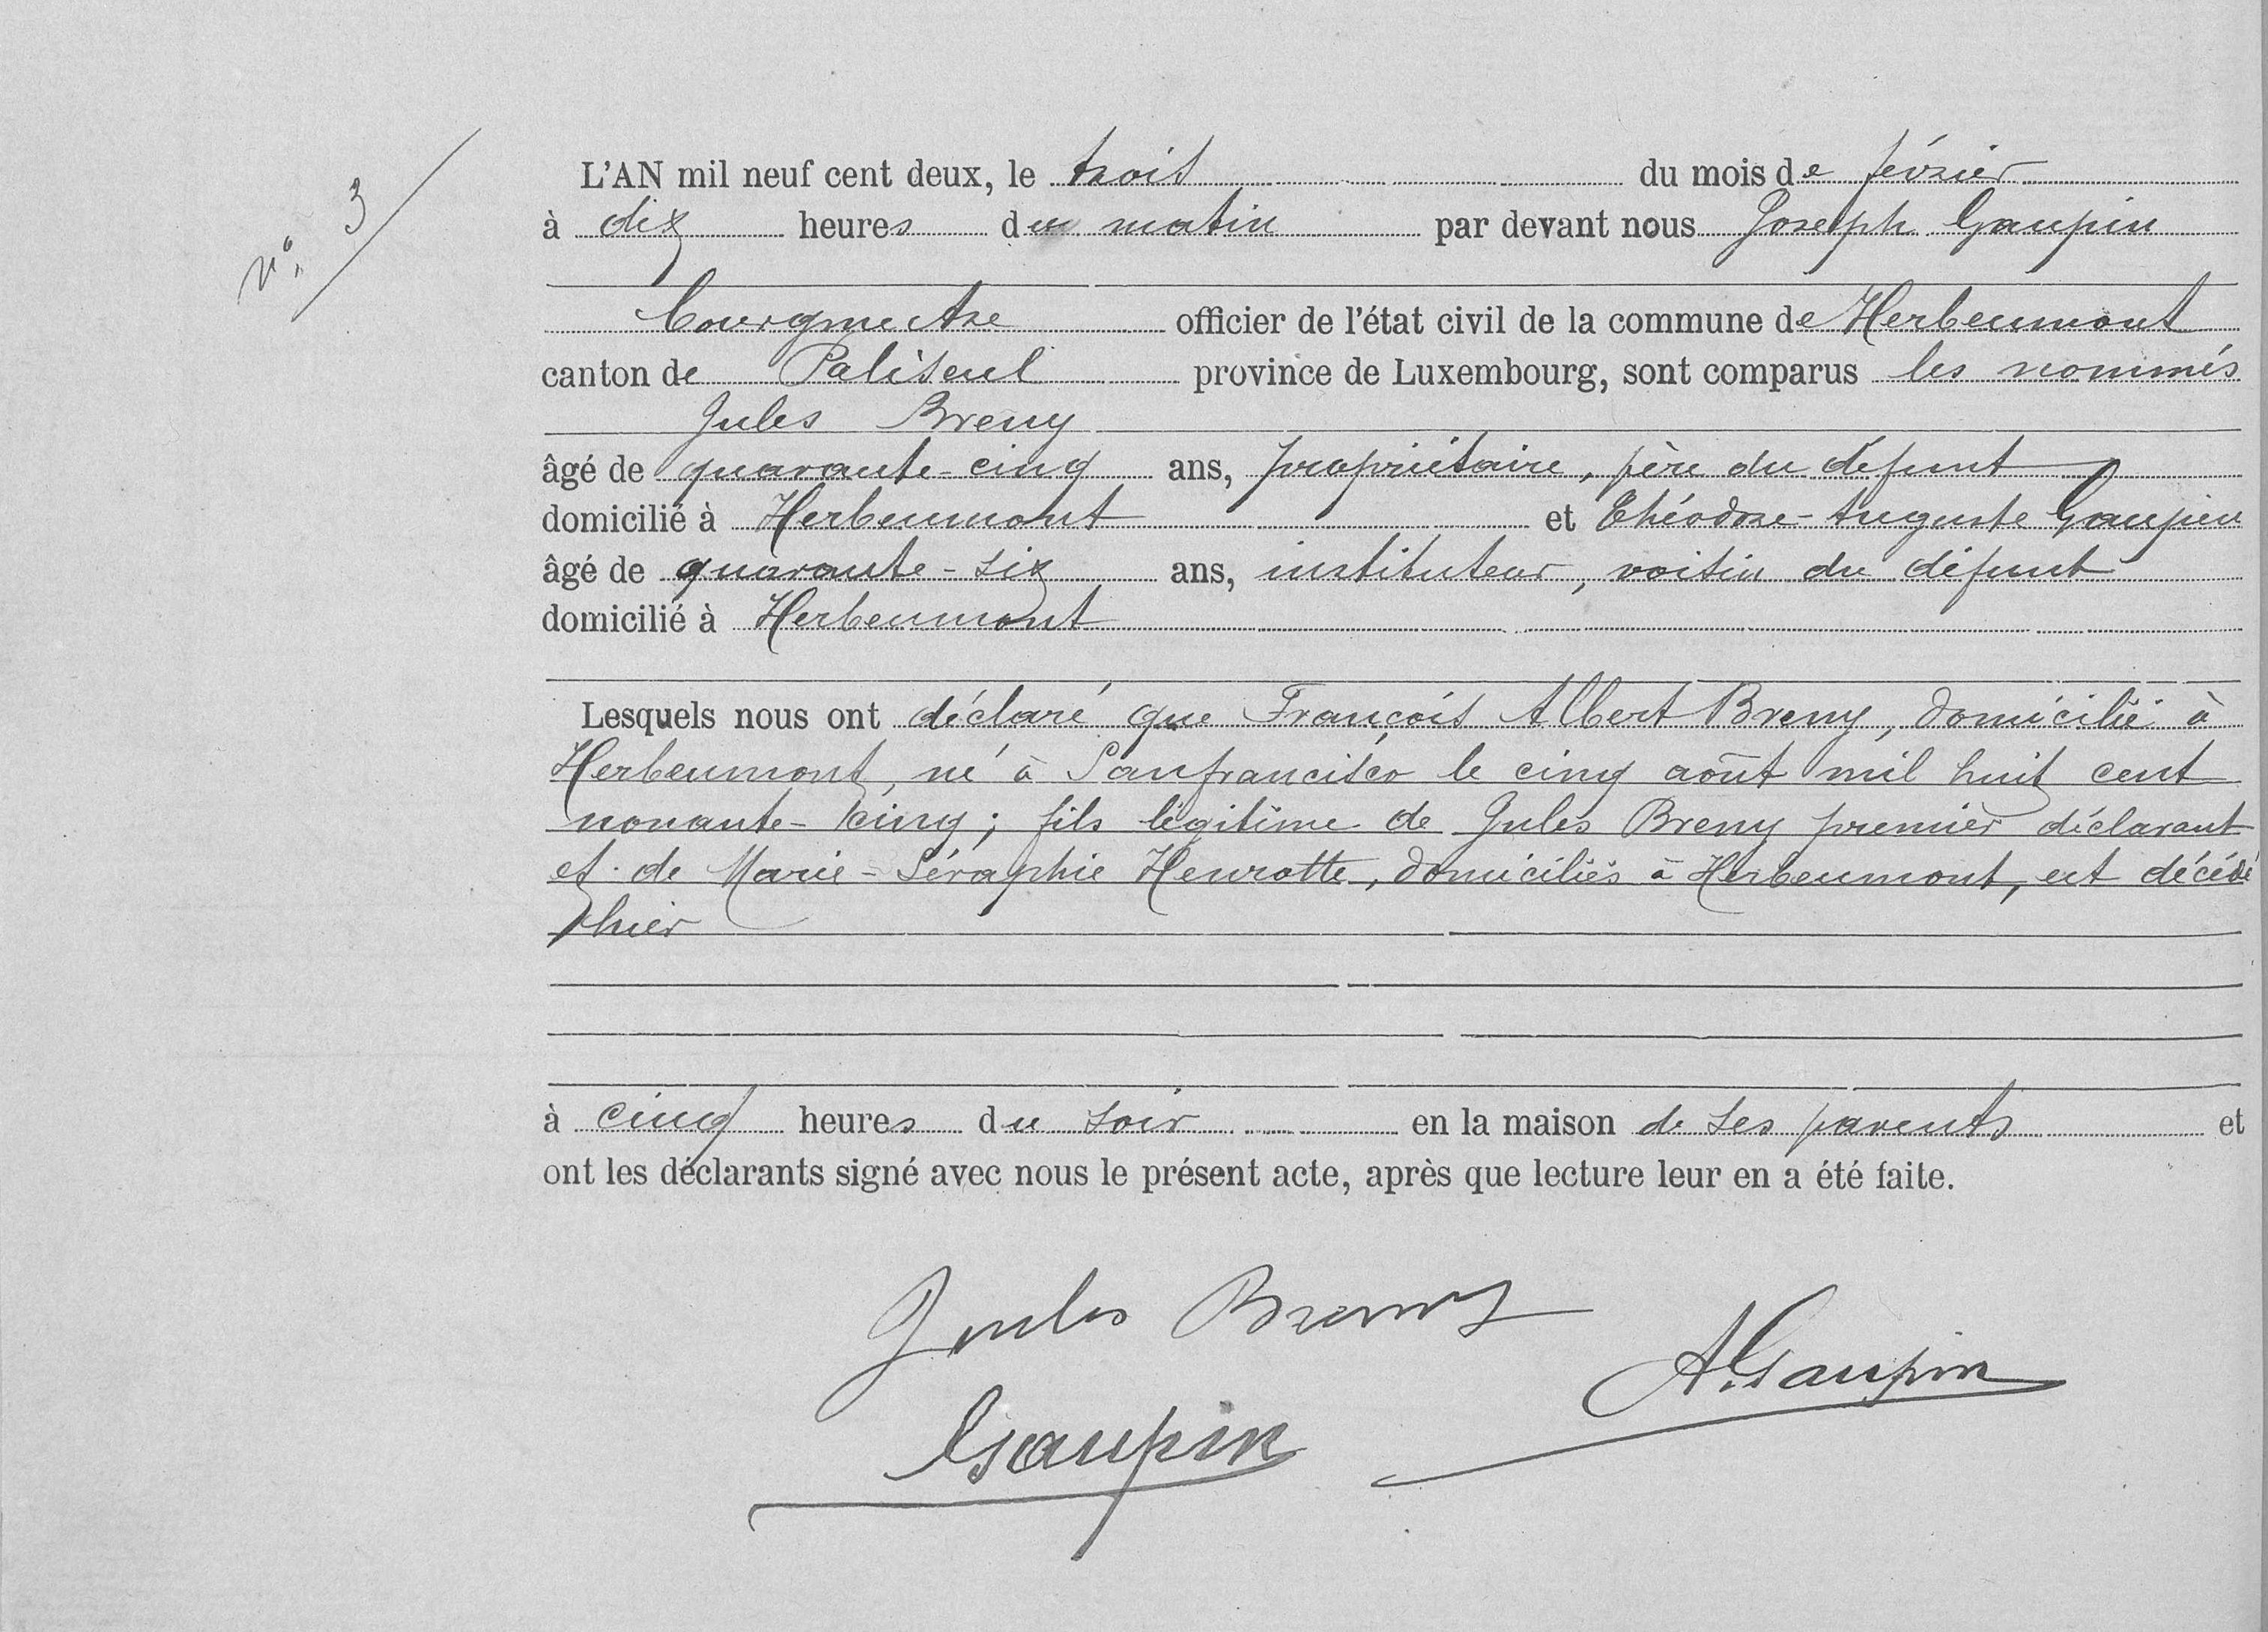 N° 3
L'AN mil neuf cent deux, le trois du mois de février
à dix heures du matin par devant nous Joseph Gaupin
bourgmestre officier de l'état civil de la commune de Herbeumont
canton de Paliseul province de Luxembourg, sont comparus les nommés
Jules Breny
âgé de quarante-cinq ans, propriétaire, père du défunt
domicilié à Herbeumont et Théodore-Auguste Gaupin
âgé de quarante-six ans, instituteur, voisin du défunt
domicilié à Herbeumont
Lesquels nous ont déclaré que François Albert Breny, domicilié à
Herbeumont, né à Sanfrancisco le cinq août mil huit cent
nonante-cinq; fils légitime de Jules Breny premier déclarant
et de Marie-Séraphie Henrotte, domiciliés à Herbeumont, est décédé
hier
à cinq heures du soir en la maison de ses parents et
ont les déclarants signé avec nous le présent acte, après que lecture leur en a été faite.
Jules Breny
A. Gaupin
Gaupin